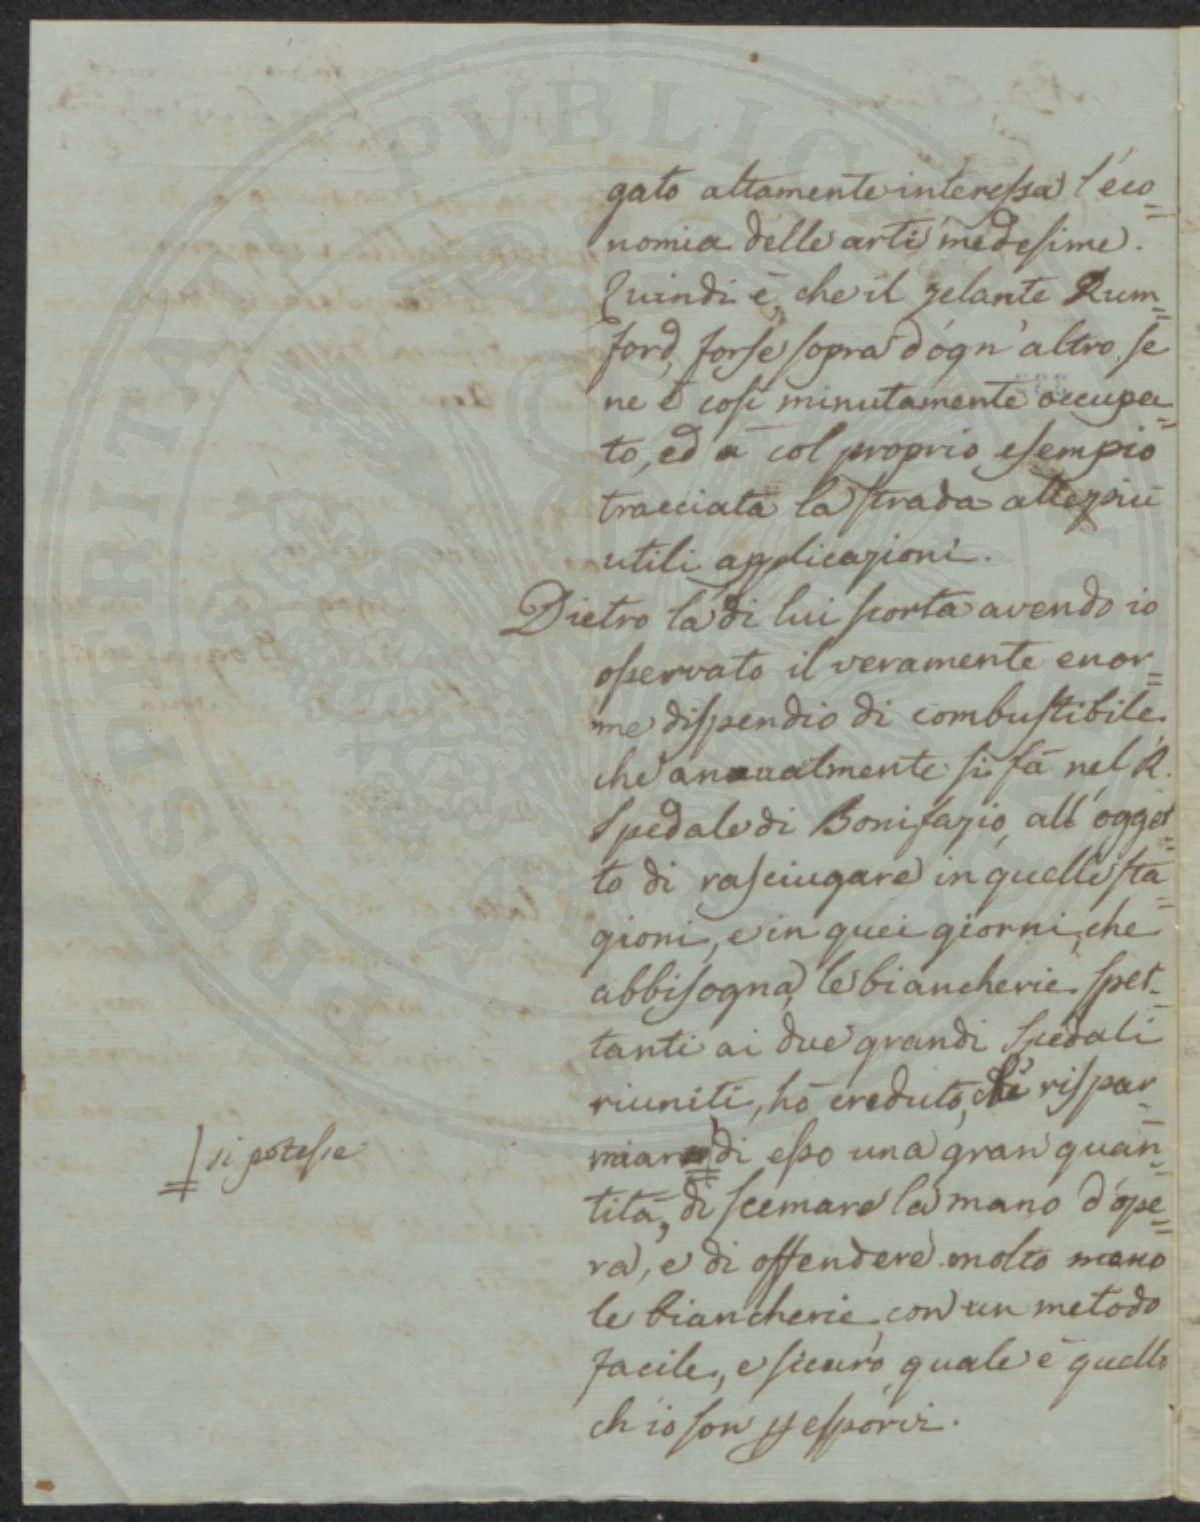 gato altamente interessa l'eco=
nomia delle arti medesime.
Quindi è, che il zelante Rum=
ford, forse sopra d'ogn'altro, se
ne è così minutamente occupa=
to, ed à col proprio esempio
tracciata la strada alle più
utili applicazioni.
Dietro la di lui scorta avendo io
osservato il veramente enor=
me dispendio di combustibile
che annualmente si fà nel R.
Spedale di Bonifazio, all'ogget=
to di rasciugare in quelle sta=
gioni, e in quei giorni, che
abbisogna, le biancherie spet=
tanti ai due grandi Spedali
riuniti, hò creduto, che rispar=
miare di esso una gran quan=
si potesse
tità, di scemare la mano d'ope=
ra, e di offendere molto meno
le biancherie, con un metodo
facile, e sicuro, quale è quello
ch'io son p esporvi.
PROSPERITATI PUBLICAE